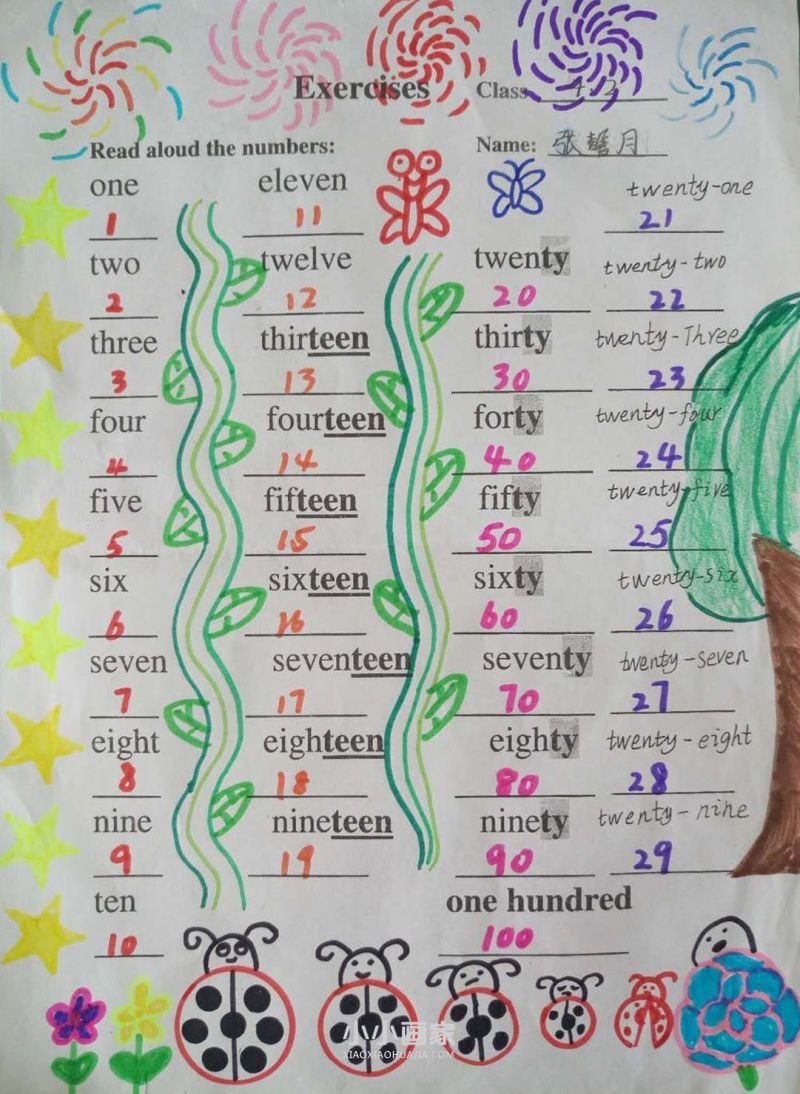 Exercises Class 4.2
Read aloud the numbers: Name: 张 月
one eleven twenty-one
1 11 21
two twelve twenty twenty-two
2 12 20 22
three thirteen thirty twenty-Three
3 13 30 23
four fourteen forty twenty-four
4 14 40 24
five fifteen fifty twenty-five
5 15 50 25
six sixteen sixty twenty-six
6 16 60 26
seven seventeen seventy twenty-seven
7 17 70 27
eight eighteen eighty twenty-eight
8 18 80 28
nine nineteen ninety twenty-nine
9 19 90 29
ten one hundred
10 100
小小画家
XIAOXIAOHUAJIA.COM